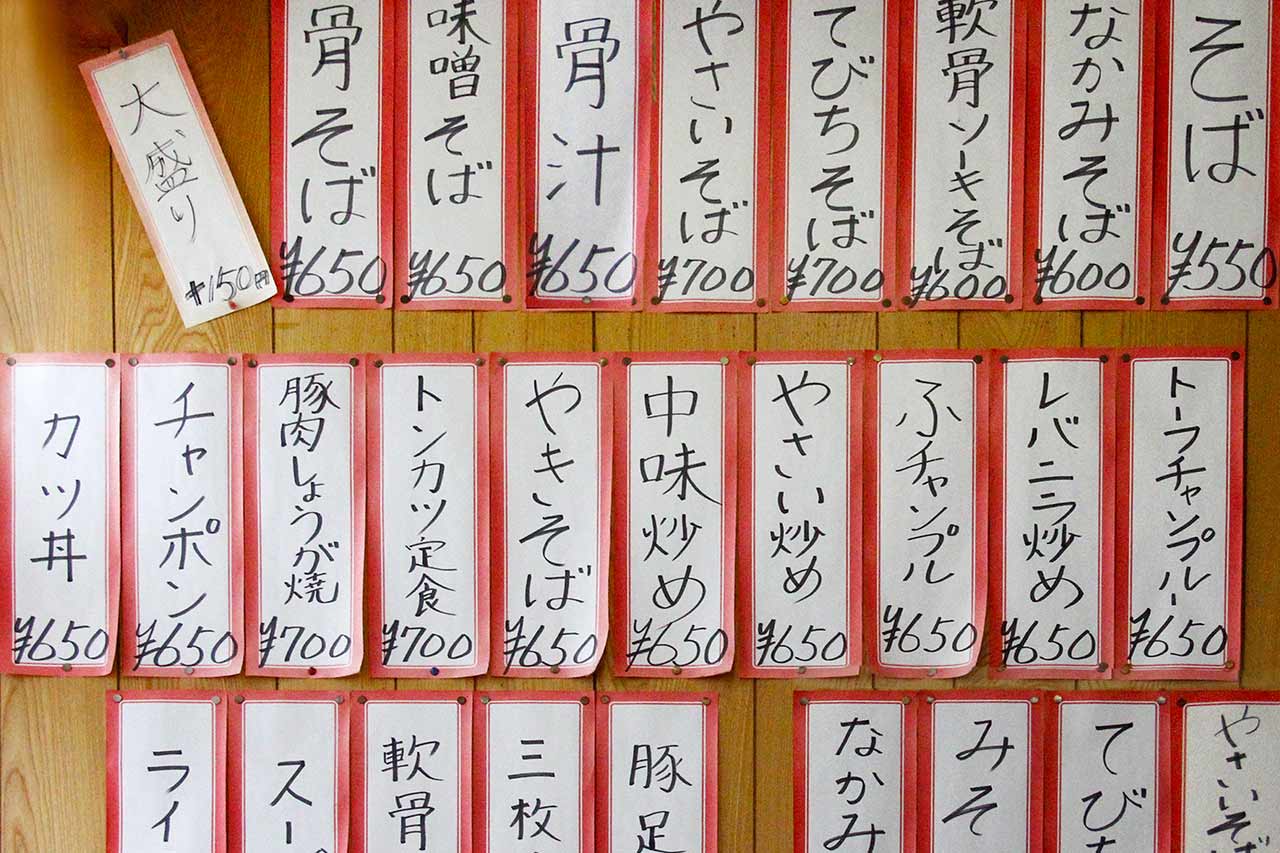 そば
¥550
なかみそば
¥600
軟骨ソーキそば
¥600
てびちそば
¥700
やさいそば
¥700
骨汁
¥650
味噌そば
¥650
骨そば
¥650
大盛り
+150円
トーフチャンプルー
¥650
レバニラ炒め
¥650
ふチャンプル
¥650
やさい炒め
¥650
中味炒め
¥650
やきそば
¥650
トンカツ定食
¥700
豚肉しょうが焼
¥700
チャンポン
¥650
カツ丼
¥650
やさいそば
てびち
みそ
なかみ
豚足
三枚
軟骨
スープ
ライ